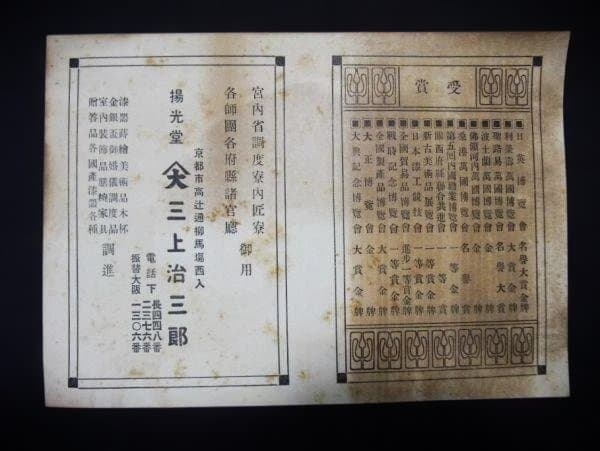 受賞
日英博覽會名譽大賞金牌
利萬國博覽會大賞金牌
聖路易萬國博覽會名譽大賞
波士蘭萬國博覽會金牌
金港萬國博覽會名譽賞
佛領河內萬國博覽會金賞牌
第五回內國勸業博覽會一等金牌
關西府縣聯合共進會一等賞
新古美術品展覽會一等賞金牌
日本漆工競技會一等賞金牌
全國貿易品博覽會進步一等賞金牌
戰時記念博覽會一等賞金牌
全國製產品博覽會大賞金牌
大正博覽會金牌
大典記念博覽會大賞金牌
宮內省調度寮內匠寮
各師團各府縣諸官廳
御用
京都市高辻通柳馬場西入
揚光堂
大
三上治三郎
電話下長四四八番
二三七六番
振替大阪一三〇六番
漆器蒔繪美術品木杯
金銀盃御婚儀調度品
室內裝飾品膳椀家具
贈答品各國產漆器各種
調進